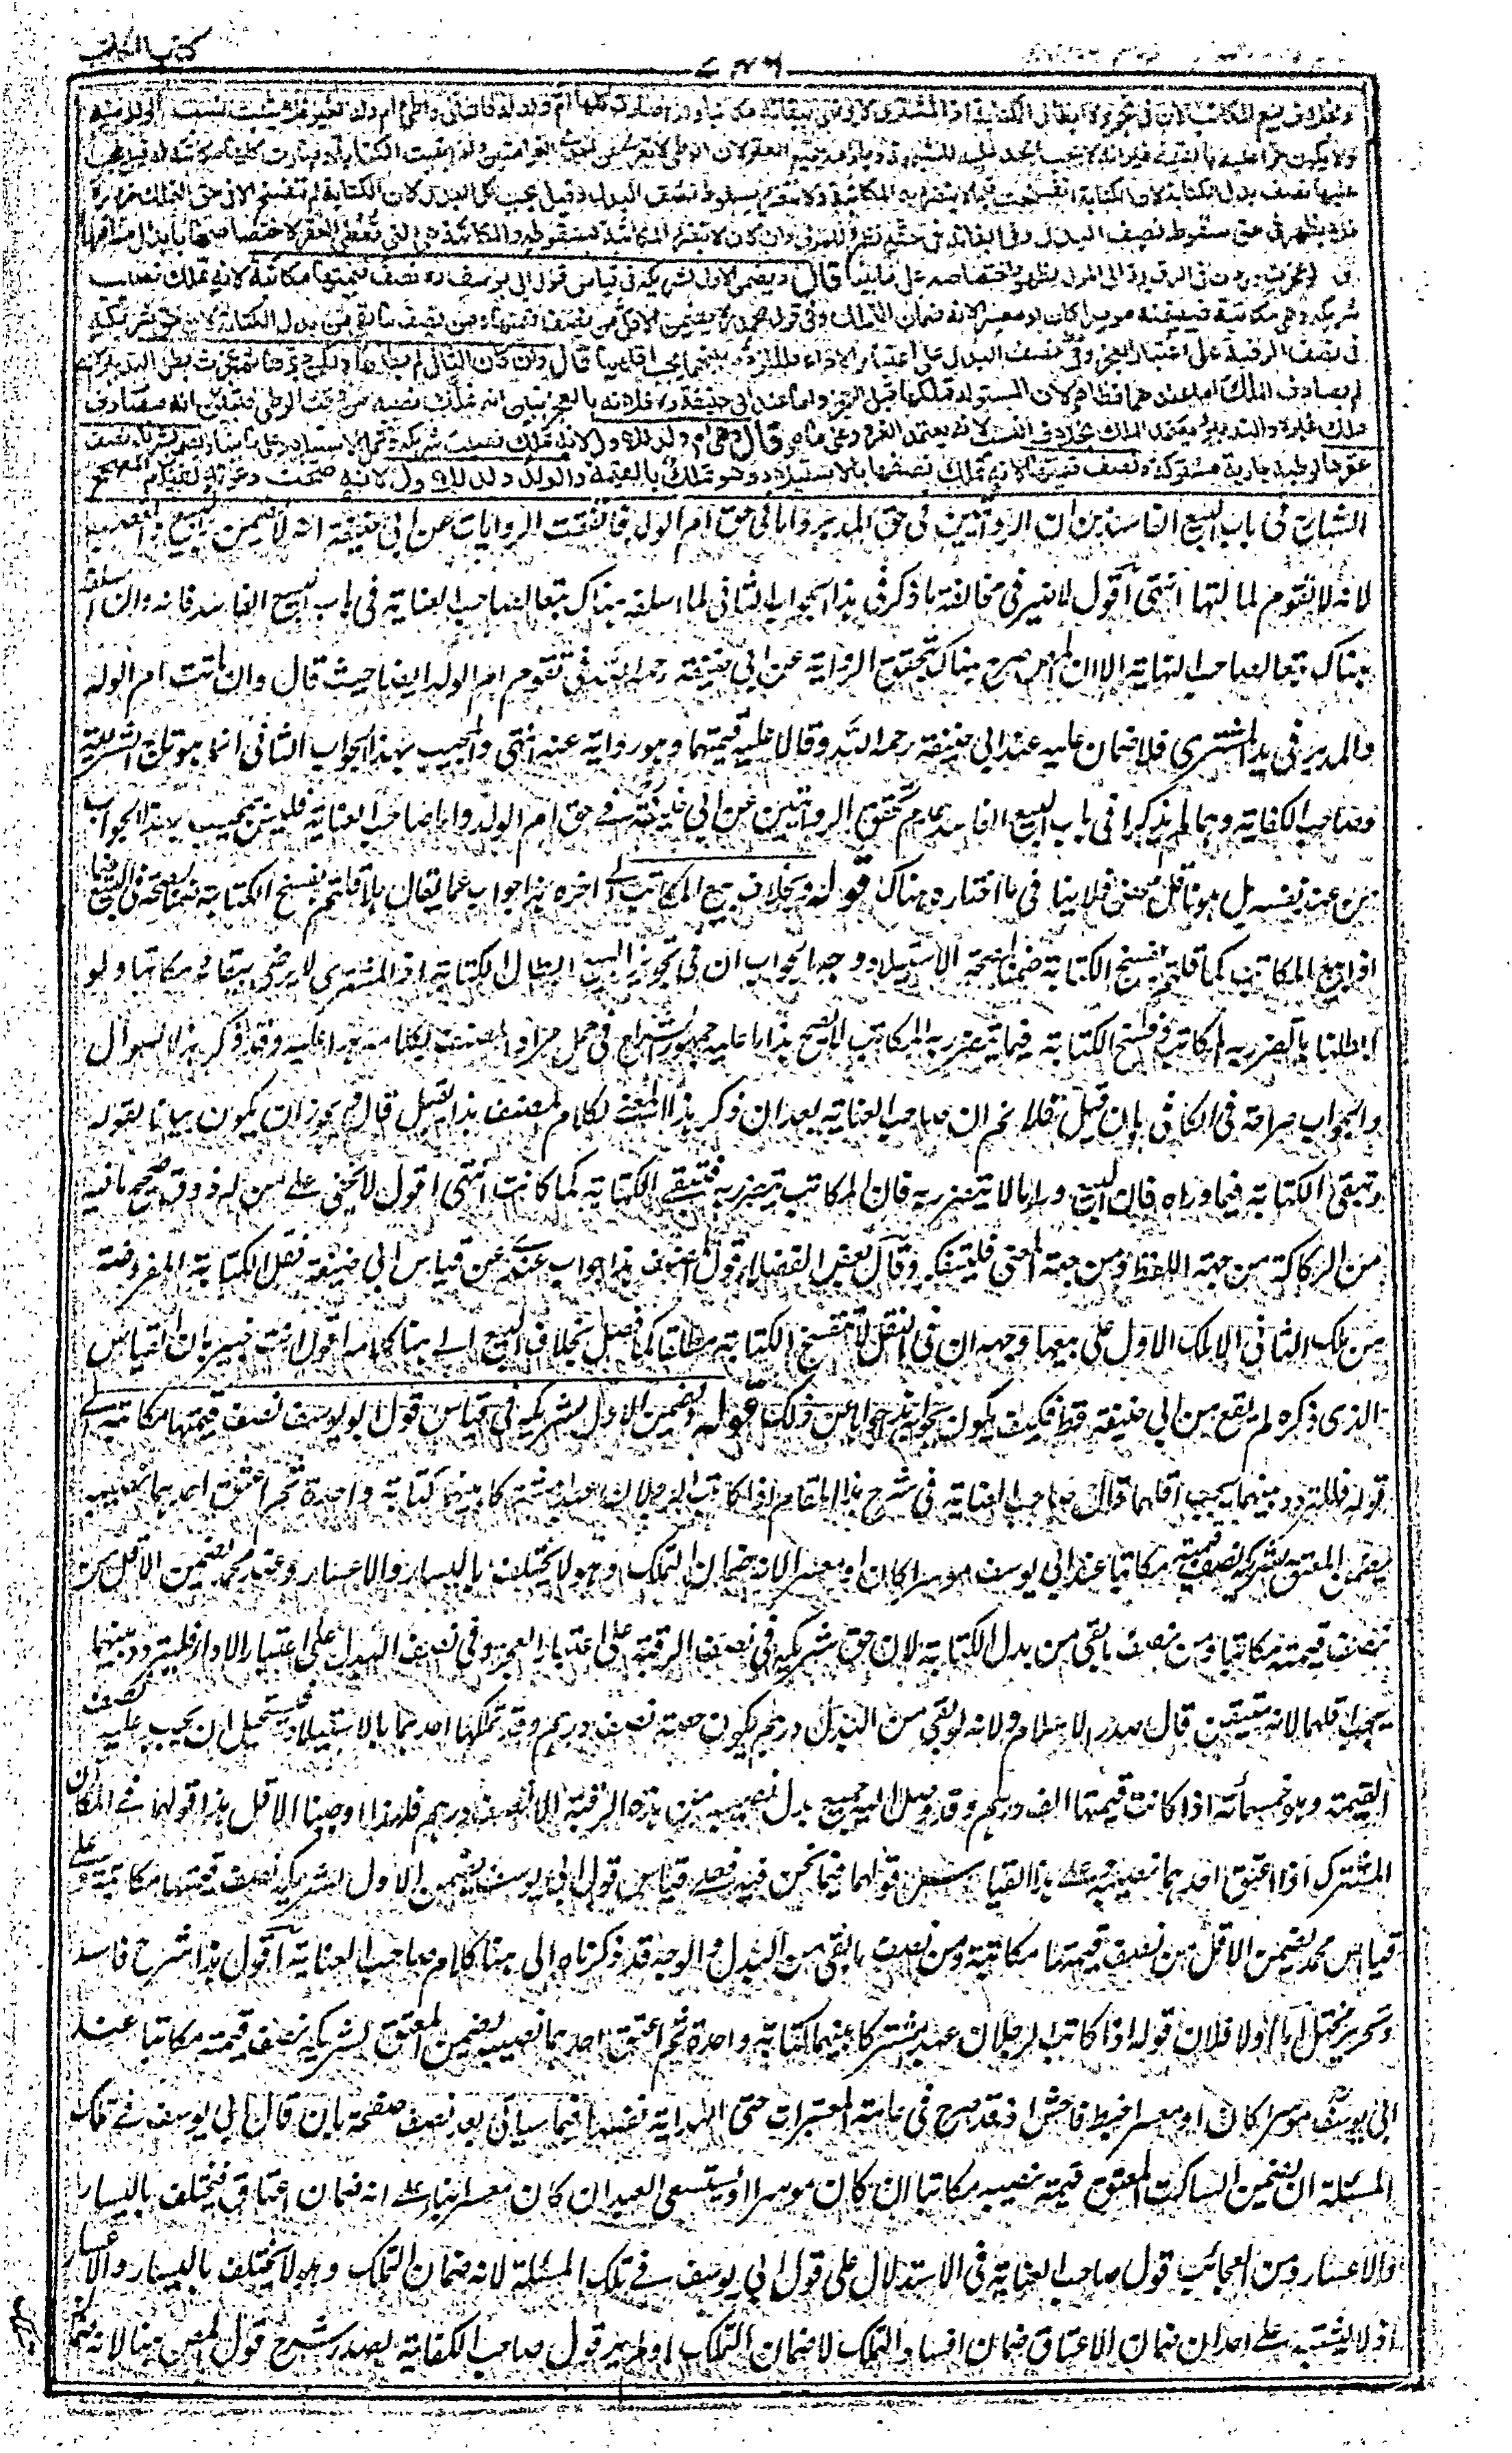 كتاب المكاتب
وبخلاف بيع المكاتب لان في تجويزه ابطال الكتابة اذ المشتري لا يرضى ببقائه مكاتبا واذا صارت كلها ام ولد له فالثاني واطئ ام ولد الغير فلا يثبت نسب الولد منه
ولا يكون حرا عليه بالقيمة غير انه لا يجب الحد عليه للشبهة ويلزمه جميع العقر لان الوطي لا يعرى عن احدى الغرامتين واذا بقيت الكتابة وصارت كلها مكاتبة له قيل يجب
عليها نصف بدل الكتابة لان الكتابة انفسخت فيما لا يتضرر به المكاتبة ولا تتضرر بسقوط نصف البدل وقيل يجب كل البدل لان الكتابة لم تنفسخ الا في حق التملك ضرورة
فلا يظهر في حق سقوط نصف البدل وفي ابقائه في حقه نظر للمولى وان كان لا تتضرر المكاتبة بسقوطه والمكاتبة هي التي تعطى العقر لاختصاصها بابدال منافعها
ولو عجزت وردت في الرق ترد الى المولى لظهور اختصاصه على ما بينا قال ويضمن الاول لشريكه في قياس قول ابي يوسف ره نصف قيمتها مكاتبة لانه تملك نصيب
شريكه وهي مكاتبة فيضمنه موسرا كان او معسرا لانه ضمان التملك وفي قول محمد ره يضمن الاقل من نصف قيمتها ومن نصف ما بقي من بدل الكتابة لان حق شريكه
في نصف الرقبة على اعتبار العجز وفي نصف البدل على اعتبار الاداء فللتردد بينهما يجب اقلهما قال وان كان الثاني لم يطأها ولكن دبرها ثم عجزت بطل التدبير لانه
لم يصادف الملك اما عندهما فظاهر لان المستولد تملكها قبل العجز واما عند ابي حنيفة ره فلانه بالعجز تبين انه تملك نصيبه من وقت الوطي فتبين انه مصادف
ملك غيره والتدبير يعتمد الملك بخلاف النسب لانه يعتمد الغرور على ما مر قال وهي ام ولد للاول لانه تملك نصيب شريكه وكمل الاستيلاد على ما بينا ويضمن لشريكه نصف
عقرها لوطيه جارية مشتركة ونصف قيمتها لانه تملك نصفها بالاستيلاد وهو تملك بالقيمة والولد ولد للاول لانه صحت دعوته لقيام المصحح
الشارح في باب البيع الفاسد من ان الروايتين في حق المدبر واما في حق ام الولد فاتفقت الروايات عن ابي حنيفة انه لا يضمن بالبيع والغصب
لانه لا تقوم لماليتها انتهى اقول لا ضير في مخالفة ما ذكر في هذا الجواب الثاني لما اسلفه هناك تبعا لصاحب العناية في باب البيع الفاسد فانه وان اسلفه
هناك تبعا لصاحب النهاية الا ان المص صرح هناك بتحقق الرواية عن ابي حنيفة رحمه الله في تقوم ام الولد ايضا حيث قال وان ماتت ام الولد
والمدبر في يد المشتري فلا ضمان عليه عند ابي حنيفة رحمه الله وقالا عليه قيمتهما وهو رواية عنه انتهى والمجيب بهذا الجواب الثاني انما هو تاج الشريعة
وصاحب الكفاية وهما لم يذكرا في باب البيع الفاسد عدم تحقق الروايتين عن ابي حنيفة في حق ام الولد واما صاحب العناية فليس بمجيب بهذا الجواب
من عند نفسه بل هو ناقل محض فلا ينافي ما اختاره هناك قوله وبخلاف بيع المكاتب الى اخره هذا جواب عما يقال هلا قلتم بفسخ الكتابة ضمنا لصحة البيع
اذا بيع المكاتب كما قلتم بفسخ الكتابة ضمنا لصحة الاستيلاد ووجه الجواب ان في تجويز البيع ابطال الكتابة اذ المشتري لا يرضى ببقائه مكاتبا ولو
ابطلناها تضرر به المكاتب وفسخ الكتابة فيما يتضرر به المكاتب لا يصح هذا ما عليه جمهور الشراح في حل مراد المصنف بكلامه هذا عليه وقد ذكر هذا السوال
والجواب صراحة في الكافي بان قيل قلنا ثم ان صاحب العناية بعد ان ذكر هذا المعنى لكلام المصنف هذا بقيل قال ويجوز ان يكون بيانا لقوله
وتبقى الكتابة فيما وراه فان البيع وراء ما لا يتضرر به فان المكاتب يتضرر به فتبقى الكتابة كما كانت انتهى اقول لا يخفى على من له ذوق صحيح ما فيه
من الركاكة من جهة اللفظ ومن جهة المعنى فليتفكر وقال بعض الفضلاء
من ملك الثاني الى ملك الاول على بيعها وجهه ان في النقل لا تنفسخ الكتابة مطلقا كما فصل بخلاف البيع الى هنا كلامه اقول انت خبير بان القياس
الذي ذكره لم يقع من ابي حنيفة قط فكيف يكون هذا جوابا عن ذلك قوله ويضمن الاول لشريكه في قياس قول ابو يوسف نصف قيمتها مكاتبة الى
قوله فللتردد بينهما يجب اقلهما قال صاحب العناية في شرح هذا المقام اذا كاتب الرجلان عبدا مشتركا بينهما كتابة واحدة ثم اعتق احدهما نصيبه
يضمن المعتق لشريكه نصف قيمته مكاتبا عند ابي يوسف موسرا كان او معسرا لانه ضمان التملك وهو لا يختلف باليسار والاعسار وعند محمد يضمن الاقل من
نصف قيمته مكاتبا ومن نصف ما بقي من بدل الكتابة لان حق شريكه في نصف الرقبة على اعتبار العجز وفي نصف البدل على اعتبار الاداء فللتردد بينهما
يجب اقلهما لانه متيقن قال صدر الاسلام ولانه لو بقي من البدل درهم يكون حصته نصف درهم وقد تملكها احدهما بالاستيلاد فيستحيل ان يجب عليه نصف
القيمة وهو خمسمائة اذا كانت قيمتها الف درهم وقد وصل اليه جميع بدل نصيبه من هذه الرقبة الا نصف درهم فلهذا اوجبنا الاقل هذا قولهما في المكاتب
المشترك اذا اعتق احدهما نصيبه على هذا القياس قولهما فيما نحن فيه فعلى قياس قول ابي يوسف يضمن الاول لشريكه نصف قيمتها مكاتبة وعلى
قياس محمد يضمن الاقل من نصف قيمتها مكاتبة ومن نصف ما بقي من البدل والوجه قد ذكرناه الى هنا كلام صاحب العناية اقول هذا شرح فاسد
وتحرير مختل اما اولا فلان قوله اذا كاتب الرجلان عبدا مشتركا بينهما كتابة واحدة ثم اعتق احدهما نصيبه يضمن المعتق لشريكه نصف قيمته مكاتبا عند
ابي يوسف موسرا كان او معسرا خبط فاحش اذ قد صرح في عامة المعتبرات حتى الهداية نفسها فيما سيأتي بعد نصف صفحة بان قال ابي يوسف في تلك
المسئلة ان يضمن الساكت المعتق قيمة نصيبه مكاتبا ان كان موسرا ويستسعى العبد ان كان معسرا بناء على انه ضمان اعتاق فيختلف باليسار
والاعسار ومن العجائب قول صاحب العناية في الاستدلال على قول ابي يوسف في تلك المسئلة لانه ضمان التملك وهو لا يختلف باليسار والاعسار
اذ لا يشتبه على احد ان ضمان الاعتاق ضمان افساد التملك لا ضمان التملك قول صاحب الكفاية بصدد شرح قول المص هنا لانه ضمان